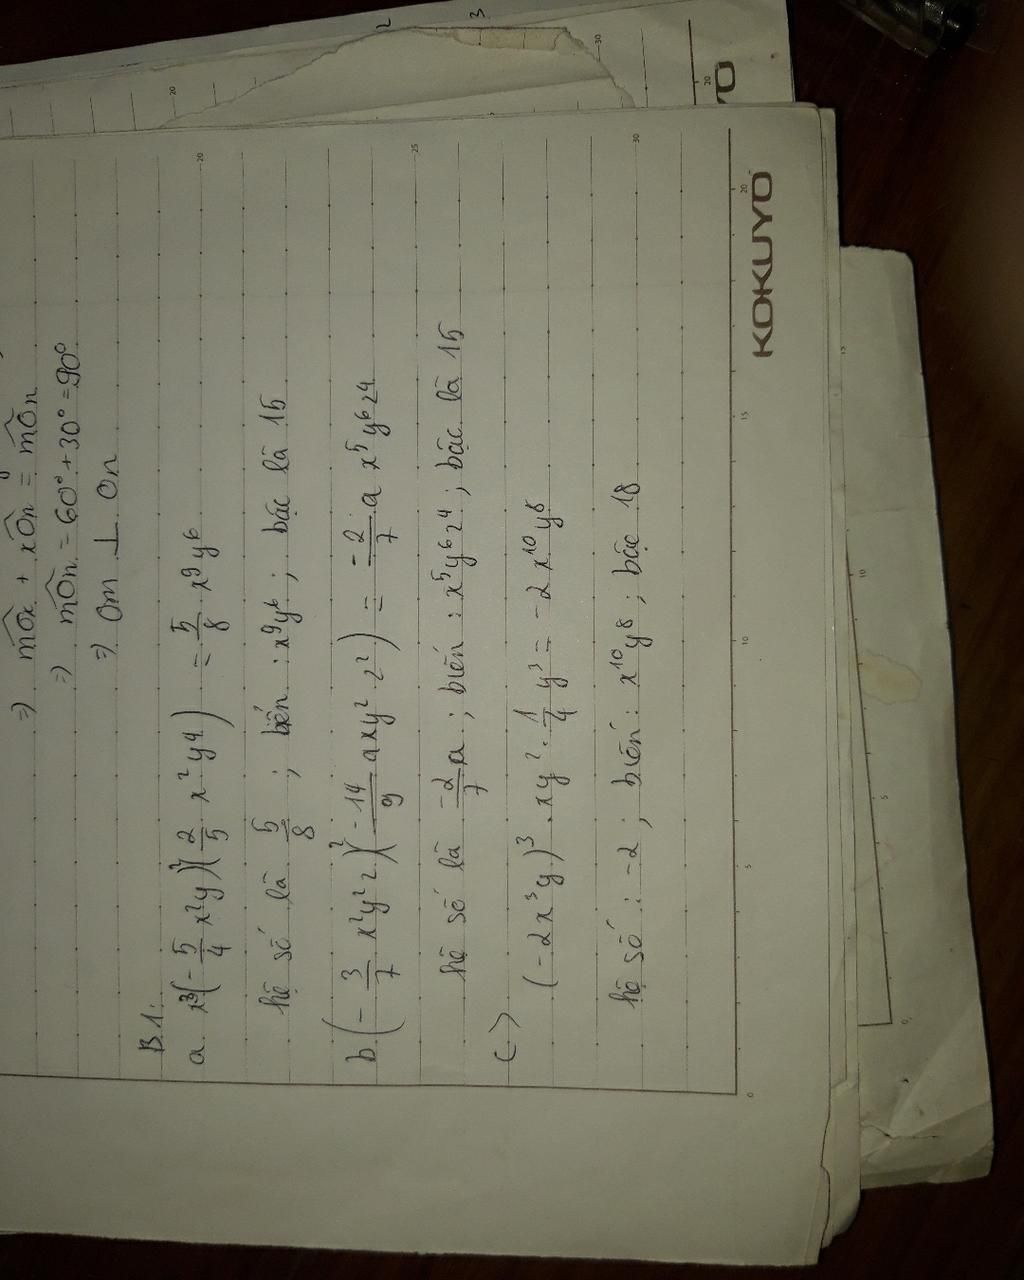 =) mOx + xOn = mOn
=) mOn = 60° + 30° = 90°
=) Om ⊥ On
B.1:
a x³(-5/4 x²y)²(2/5 x²y4) = 5/8 x9y6
hệ số là 5/8 ; biến : x9y6 ; bậc là 15
b (-3/7 x²y²z)²(-14/9 axy² z²) = -2/7 a x⁵y⁶z4
hệ số là -2/7 a ; biến : x⁵y⁶z⁴ ; bậc là 15
c) (-2x³y)³ . xy² . 1/4 y³ = -2 x¹⁰y⁸
hệ số : -2 ; biến : x¹⁰y8 ; bậc 18
KOKUYO
YO
2 3
20
25
30
20
15
10
5
0
20
30
20
15
10
5
0